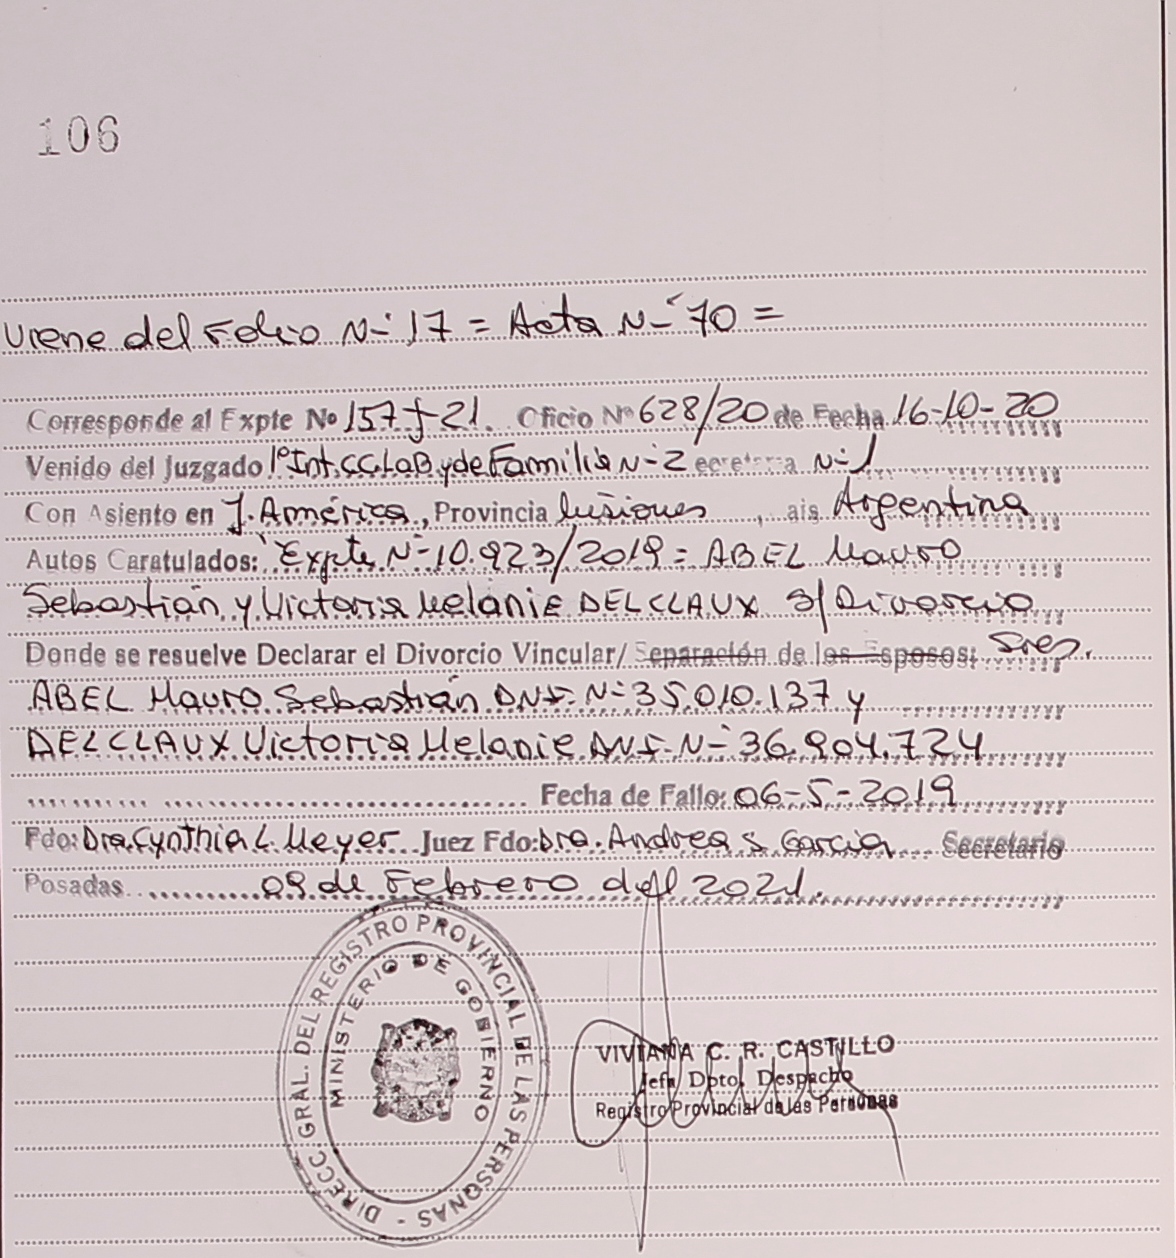 106
Viene del Folio N-° 17 = Acta N-° 70 =
Corresponde al Expte Nº 157-J-21. Oficio Nº 628/20 de Fecha 16-10-20
Venido del Juzgado 1º Int.CC.LaB y de Familia N-2 ecretaria N-1
Con Asiento en J. América, Provincia Misiones, ais Argentina
Autos Caratulados: "Expte N-10.923/2019 = ABEL Mauro
Sebastián y Victoria Melanie DELCLAUX S/Divorcio
Donde se resuelve Declarar el Divorcio Vincular/ Separación de los Esposos: Sres.
ABEL Mauro Sebastián DNI-N-°35.010.137 y
DELCLAUX Victoria Melanie DNI-N-°36.904.724
Fecha de Fallo: 06-5-2019
Fdo: Dra. Cynthia L. Meyer Juez Fdo: Dra. Andrea S Garcia Secretario
Posadas 09 de Febrero del 2021.
DIRECC. GRAL. DEL REGISTRO PROVINCIAL DE LAS PERSONAS -
MINISTERIO DE GOBIERNO
VIVIANA C. R. CASTILLO
Jefa Dpto. Despacho
Registro Provincial de las Personas